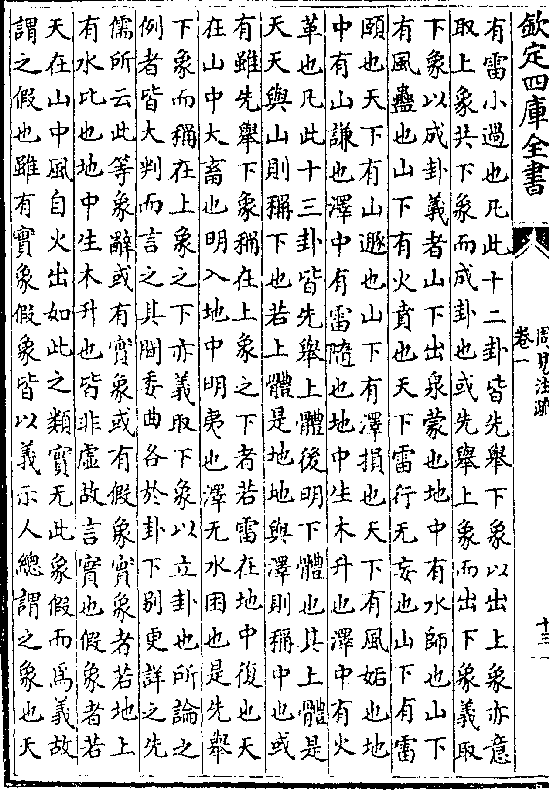 欽定四庫全書
周易注疏
卷一
十三
有雷小過也凡此十二卦皆先舉下象以出上象亦意
取上象共下象而成卦也或先舉上象而出下象義取
下象以成卦義者山下出泉蒙也地中有水師也山下
有風蠱也山下有火賁也天下雷行无妄也山下有雷
頤也天下有山遯也山下有澤損也天下有風姤也地
中有山謙也澤中有雷隨也地中生木升也澤中有火
革也凡此十三卦皆先舉上體後明下體也其上體是
天天與山則稱下也若上體是地地與澤則稱中也或
有雖先舉下象稱在上象之下者若雷在地中復也天
在山中大畜也明入地中明夷也澤无水困也是先舉
下象而稱在上象之下亦義取下象以立卦也所論之
例者皆大判而言之其間委曲各於卦下別更詳之先
儒所云此等象辭或有實象或有假象實象者若地上
有水比也地中生木升也皆非虛故言實也假象者若
天在山中風自火出如此之類實无此象假而為義故
謂之假也雖有實象假象皆以義示人總謂之象也天